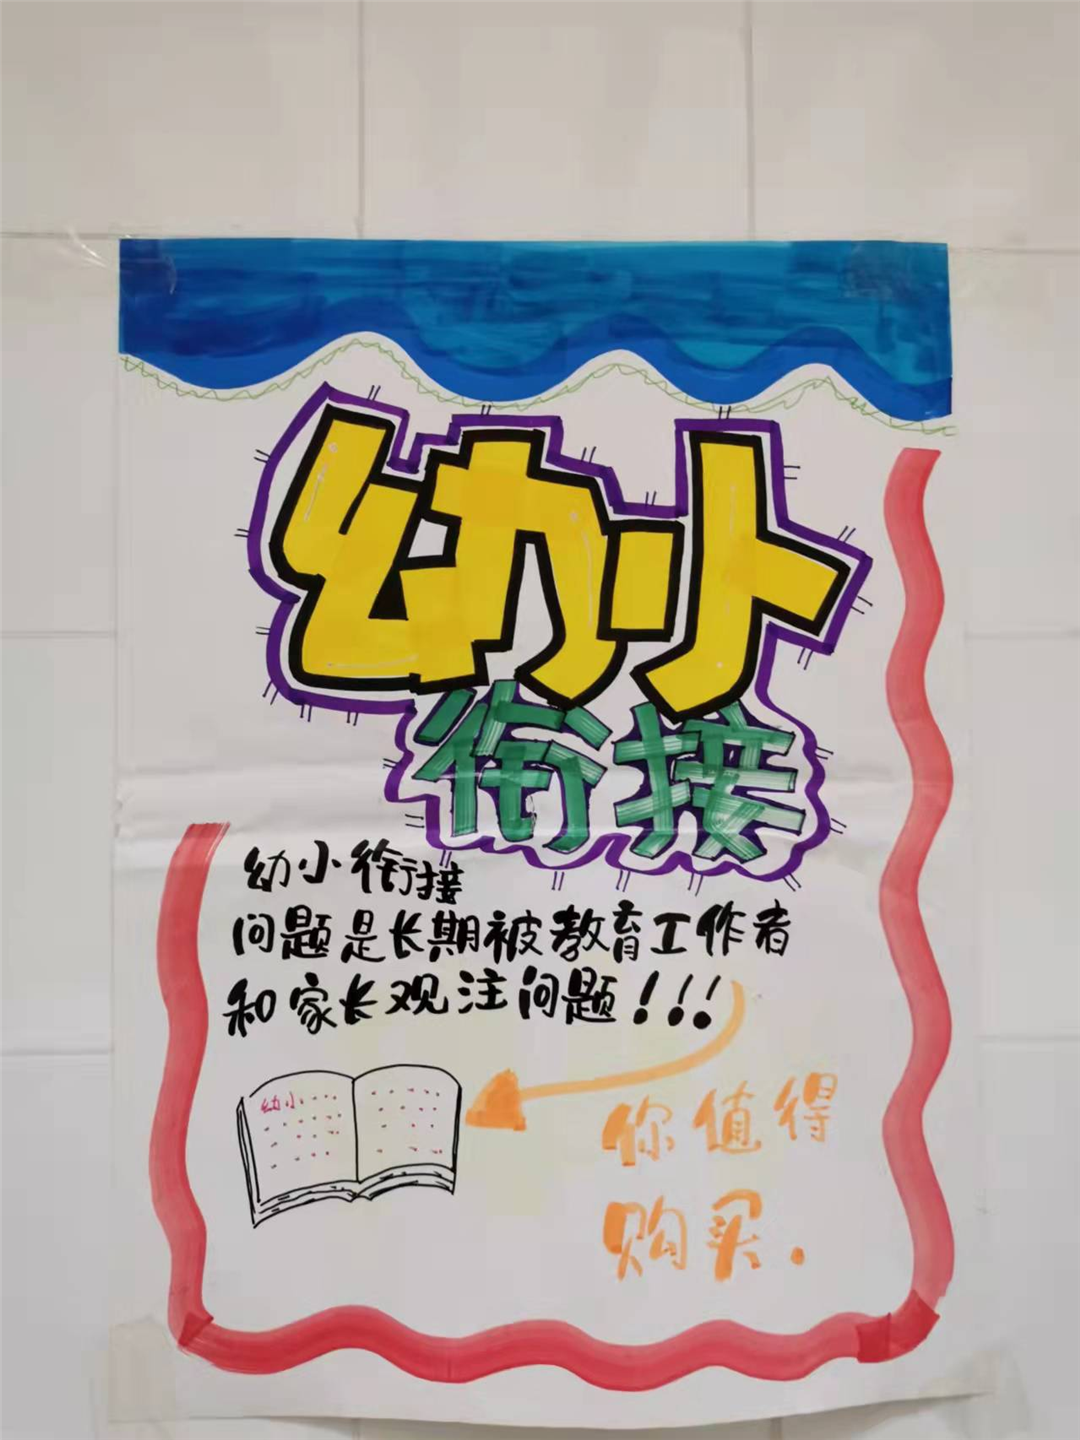 幼小
衔接
幼小衔接
问题是长期被教育工作者
和家长观注问题！！！
幼小……
你值得
购买.